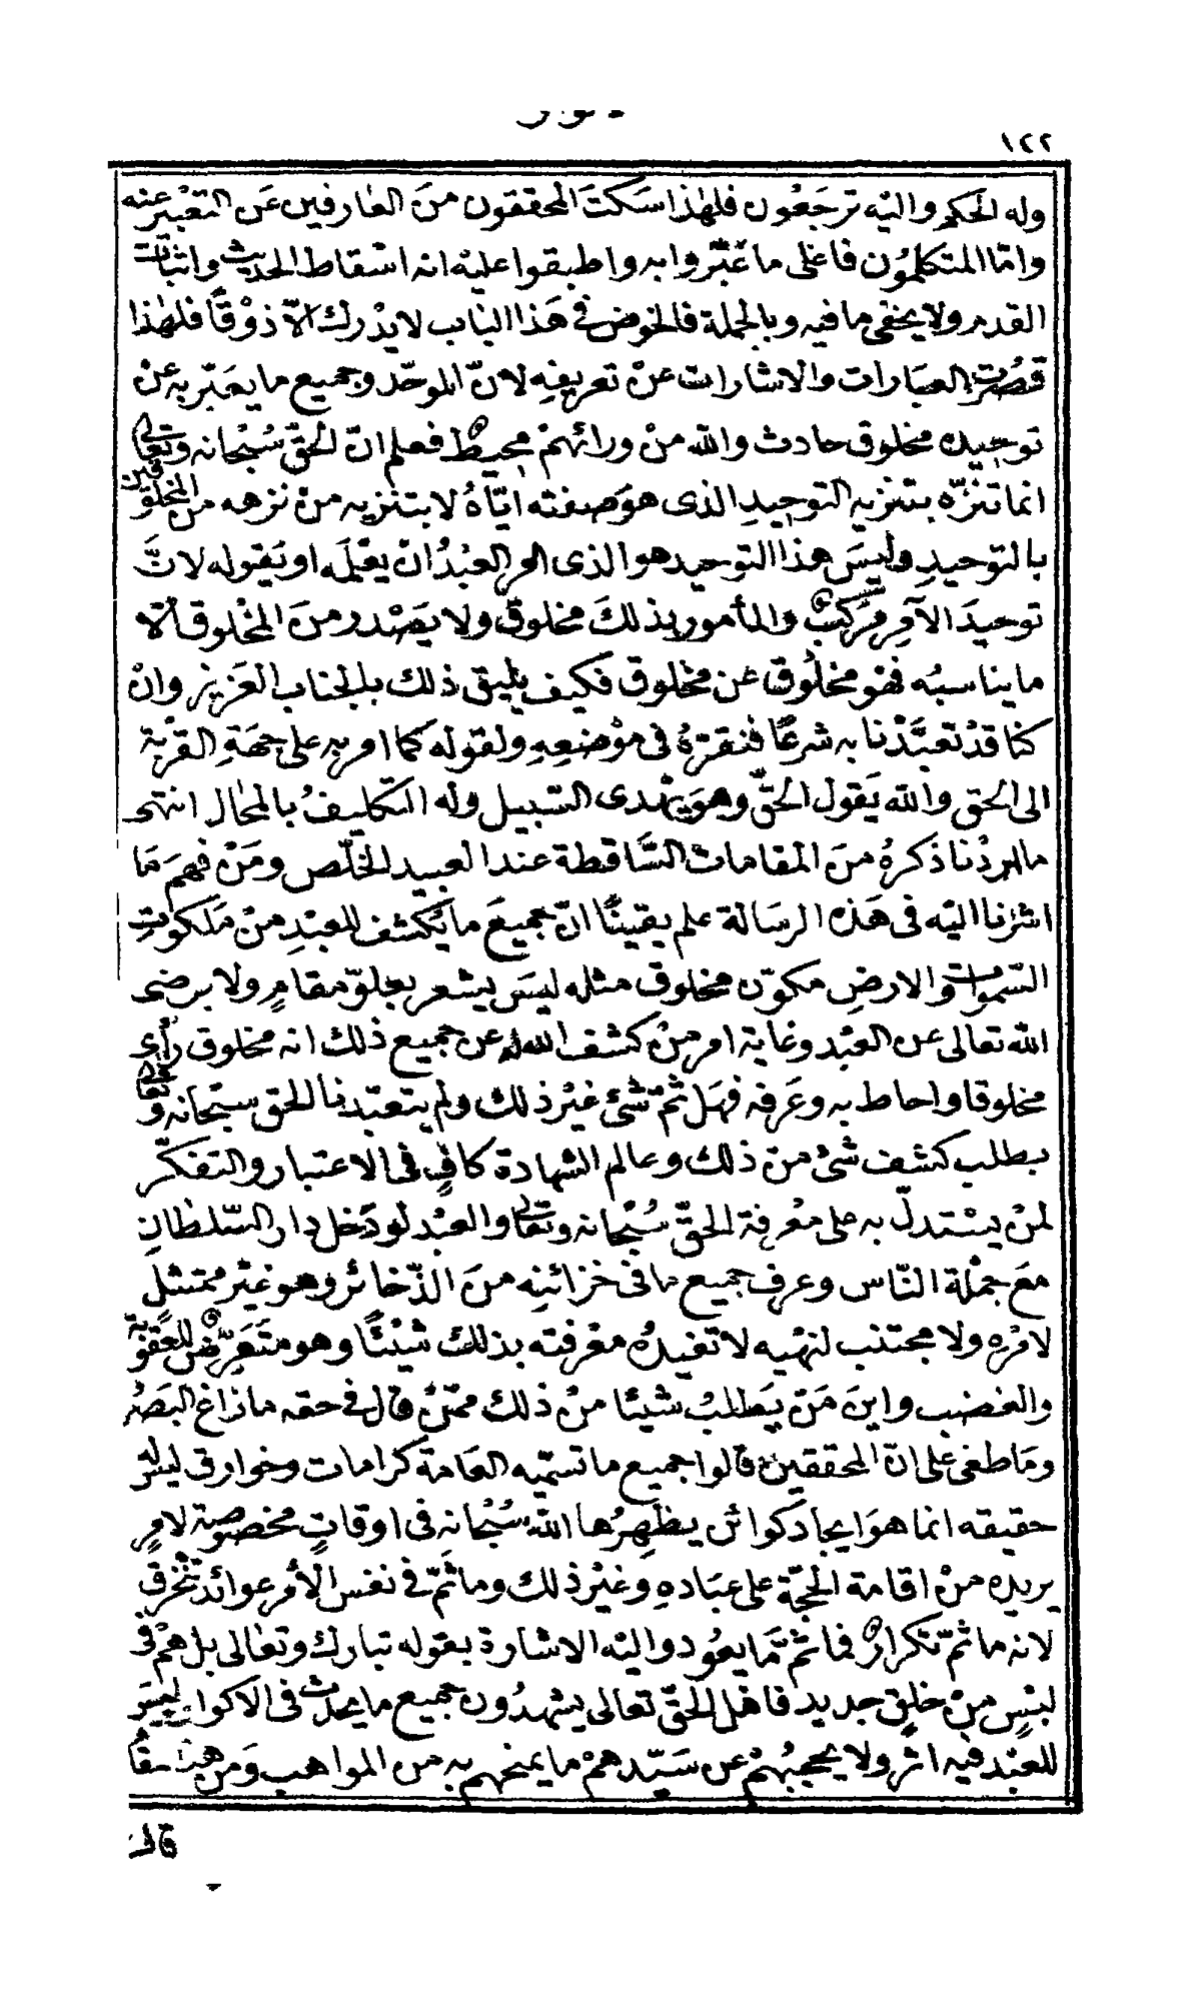 ١٢٢
وله الحكم واليْه ترجَعُون فلهٰذا سَكتَ المحققون منَ العٰارفين عَن التعْبير عنه
وامّا المتكلمُون فاعْلى ما عَبّروا به واطبقوا عليْه انه اسْقاط الحديث واثبات
القدم ولا يخفى ما فيه وبالجملة فالخوض في هَذا الباب لا يدْرك الّا ذوْقًا فلهٰذا
قصُرت العبَارات والاشارات عنْ تعريفِهِ لانّ الموحّد وجميع ما يعَبّر به عنْ
توحيده مخلوق حادث والله منْ ورائهمْ محيط فعلم انّ الحقّ سُبْحانه وتعالى
انما تنزّه بتنزيه التوحيدِ الذى هوَ صفته ايّاهُ لا بتنزيه منْ نزهه من المخلوقين
بالتوحيدِ وليْسَ هذا التوحيد هو الذى امر العَبْدُ انْ يعْمله او يَقوله لانَّ
توحيدَ الآمِر مُركبٌ والمأمور بذلكَ مخلوقٌ ولا يصْدر منَ المخْلوق الّا
ما يناسبُه فهو مخلُوق عن مخلوق فكيف يليق ذلك بالجناب العَزيز وانْ
كنا قدْ تعبَّدْنا به شرعًا فنقرّهُ فى موْضعِهِ ولقوله كما امر به على جهَةِ القرْبة
الى الحق والله يَقول الحقّ وهوَ يهْدى السّبيل وله التكليفُ بالمحال انتهى
ما اردْنا ذكرهُ منَ المقامات السَّاقطة عند العبيد الخلّص ومَنْ فهمَ مَا
اشرْنا اليْه فى هَذه الرسَالة علم يقينًا انّ جميعَ ما يُكشف للعبْدِ منْ ملكوت
السّموات والارضِ مكوّن مخلوق مثله ليسَ يشعر بعلوّ مقامٍ ولا برضى
الله تعالى عن العبْد وغاية امر منْ كشف الله له عن جميع ذلك انه مخلوق رأى
مخلوقا واحاط به وعَرفه فهَل ثمّ شئ غيْر ذلك ولم يتعبّدنا الحق سبْحانه وتعالى
بطلب كشف شئ من ذلك وعالم الشهادة كافٍ فى الاعتبار والتفكّر
لمنْ يسْتدلّ به على معْرفة الحقّ سُبْحانه وتعالى والعبْد لو دَخل دار السّلطانِ
معَ جمْلة النّاس وعرف جميع ما فى خزائنِه منَ الذّخائر وهو غيْر ممتثلٍ
لامْرِه ولا مجتنب لنهْيه لا تفيدُه معْرفته بذلك شيْئًا وهو متَعَرّضٌ للعقوبة
والغضب واينَ مَنْ يَطلبُ شيْئا منْ ذلك ممّنْ قال في حقه ما زاغ البَصرُ
ومَا طغى على انّ المحققين قالوا جميع ما تسمّيه العَامة كرامات وخوارق ليسَ له
حقيقه انما هوَ ايجاد كوائن يظهِرُها الله سُبْحانه فى اوقاتٍ مخصُوصة لامرٍ
يريده منْ اقامة الحجّة على عبَادهِ وغيْر ذلك وما ثمّ في نفس الأمر عوائد تخْرق
لانه ما ثمّ تكرارٌ فما ثمّ مَا يعُود واليْه الاشارة بقوله تبارك وتعٰالى بل همْ فى
لبْسٍ منْ خلقٍ جديد فاهْل الحقّ تعالى يشهدُون جميع ما يحدث فى الاكوان ليْسَ
للعبْد فيه اثر ولا يحجبُهمْ عن سَيّدهمْ ما يمنحهم به من المواهب وَمن هنا
قال